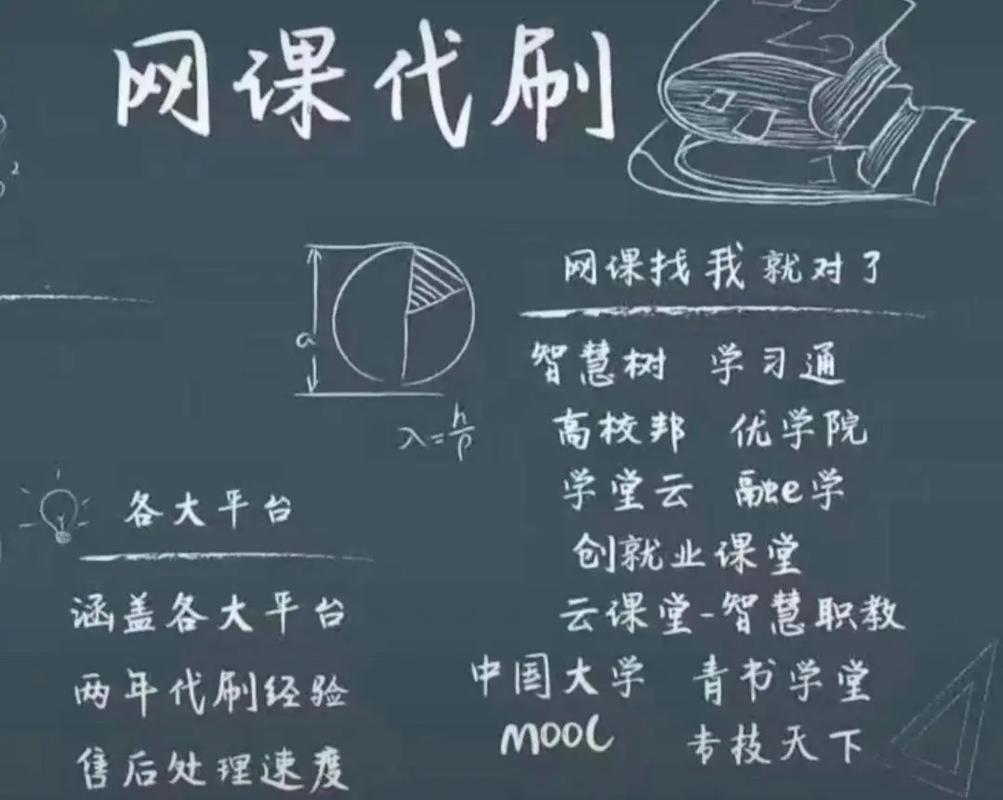 网课代刷
2
a
λ=h/p
网课找我就对了
智慧树 学习通
高校邦 优学院
学堂云 融e学
创就业课堂
云课堂-智慧职教
中国大学 青书学堂
MOOC 专技天下
各大平台
涵盖各大平台
两年代刷经验
售后处理速度